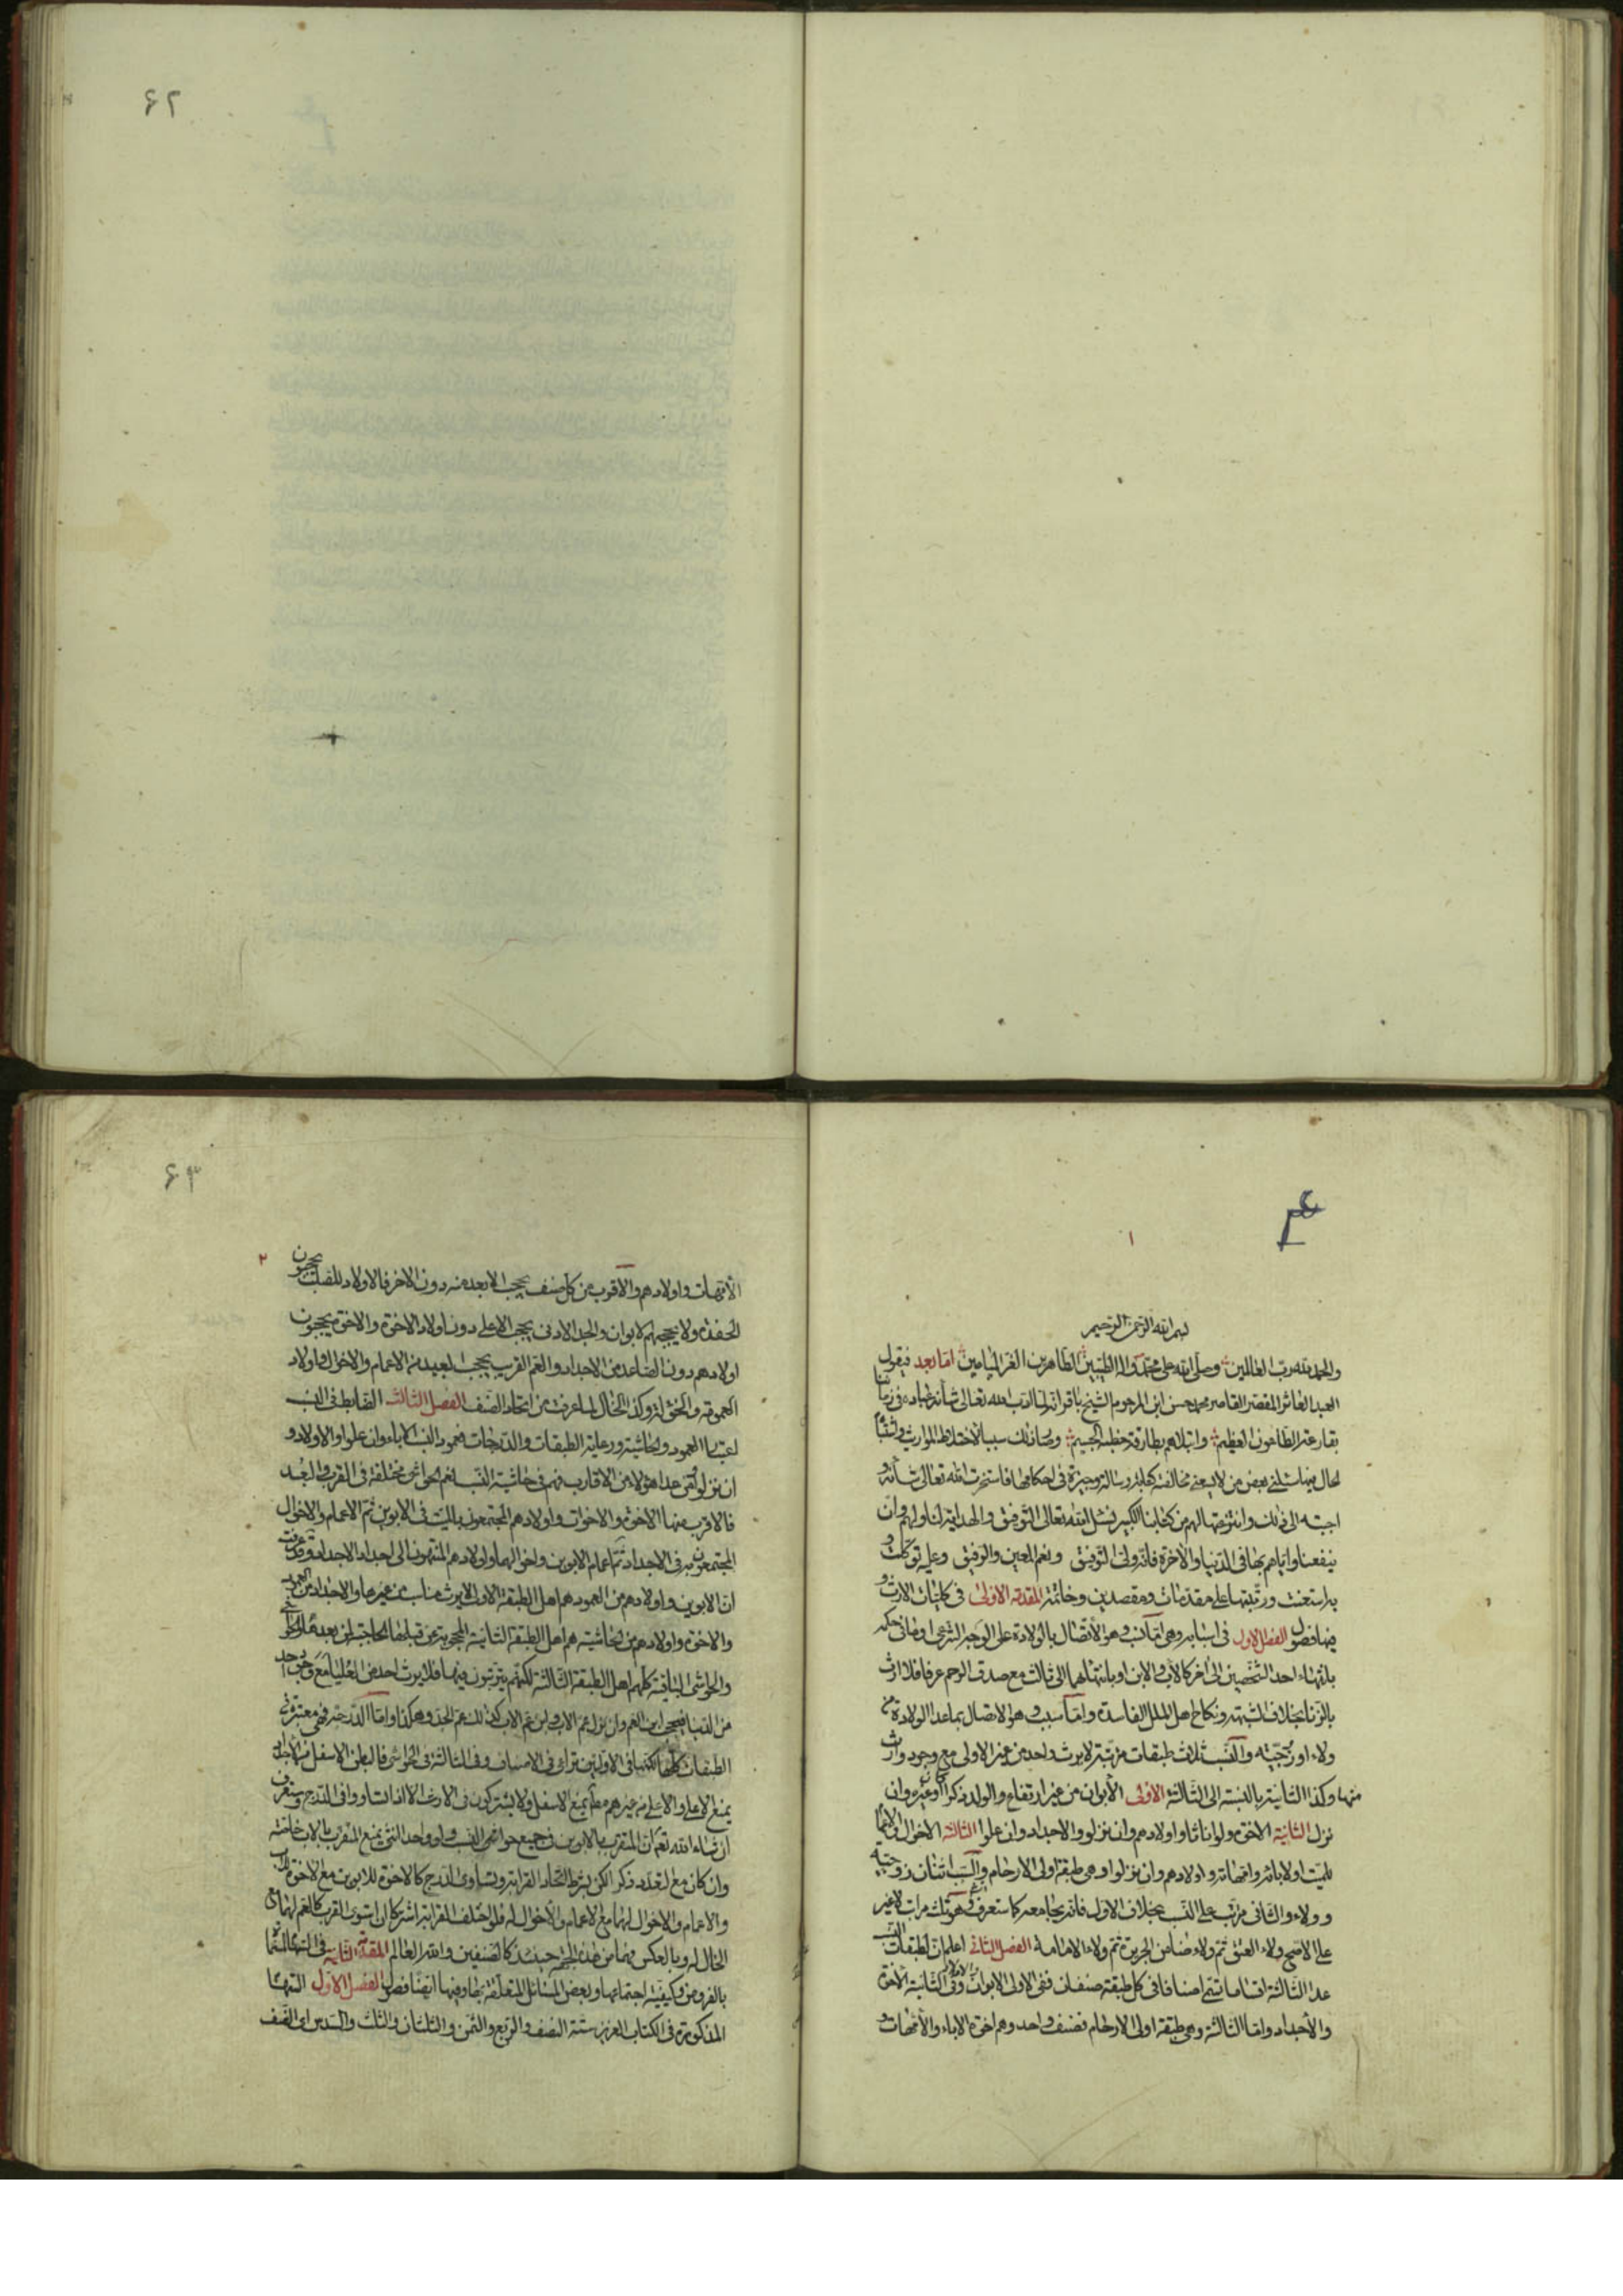 ۶۲
۶۳
۱
بسم الله الرحمن الرحیم
والحمد لله رب العالمین وصلی الله علی محمد واله الطیبین الطاهرین الغر المیامین اما بعد فیقول
العبد العاثر المقصر القاصر محمد حسن ابن المرحوم الشیخ باقر انه لما ادب الله تعالی شانه عباده فی زماننا
بقارعته الطاعون العظیم وابتلاهم بطارقة خطبه الجسیم وصار ذلك سببا لاختلاط المواریث واشتباه
الحال فیها سئلنی بعض من لا یسعنی مخالفته کتابة رسالة وجیزة فی احکامها فاستخرت الله تعالی شانه و
اجبته الی ذلك وانتزعتها لهم من کتابنا الکبیر فنسئل الله تعالی التوفیق والهدایة لنا ولهم وان
ینفعنا وایاهم بها فی الدنیا والاخرة فانه ولی التوفیق ونعم المعین والرفیق وعلیه توکلت و
به استعنت ورتبتها علی مقدمات ومقصدین وخاتمة المقدمة الاولی فی کلیات الارث و
فیها فصول الفصل الاول فی اسبابه وهی اما نسب وهو الاتصال بالولادة علی الوجه الشرعی او ما فی حکمه
بانتهاء احد الشخصین الی الاخر کالاب والابن او بانتهائهما الی ثالث مع صدق الرحم عرفا فلا ارث
بالزنا بخلاف الشبهة ونکاح اهل الملل الفاسدة واما سبب وهو الاتصال بما عدا الولادة من
ولاء او زوجیة والنسب ثلاث طبقات مرتبة لا یرث واحد من غیر الاولی مع وجود وارث
منها وکذا الثانیة بالنسبة الی الثالثة الاولی الابوان من غیر ارتفاع والولد ذکرا کان او غیره وان
نزل الثانیة الاخوة ولو اناثا واولادهم وان نزلوا والاجداد وان علوا الثالثة الاخوال والاعمام
للمیت او لابائه وامهاته واولادهم وان نزلوا وهی طبقة اولی الارحام والسبب اثنان زوجیة
وولاء والثانی مرتب علی النسب بخلاف الاول فانه یجامعه کما ستعرف وهو ثلث مراتب لا غیر
علی الاصح ولاء العتق ثم ولاء ضامن الجریرة ثم ولاء الامامة الفصل الثانی اعلم ان لطبقات النسب
عدا الثالثة اقساما تسمی اصنافا فی کل طبقة صنفان ففی الاولی الابوان والاولاد وفی الثانیة الاخوة
والاجداد واما الثالثة وهی طبقة اولی الارحام فصنف واحد وهم اخوة الاباء والامهات و
۲
الامهات واولادهم والاقرب من کل صنف یحجب الابعد منه دون الاخر فالاولاد للصلب یحجبون
الحفدة ولا یحجبهم الابوان والجد الادنی یحجب الاعلی دون اولاد الاخوة والاخوة یحجبون
اولادهم دون الصاعد من الاجداد والعم القریب یحجب البعید من الاعمام والاخوال واولاد
العمومة والخؤلة وکذا الخال لما عرفت من اتحاد الصنف الفصل الثالث الضابط فی النسب
اعتبار العمود والحاشیة ورعایة الطبقات والدرجات فعمود النسب الاباء وان علوا والاولاد و
ان نزلوا ومن عدا هؤلاء من الاقارب فهم فی حاشیة النسب نعم الحواشی مختلفة فی القرب والبعد
فالاقرب منها الاخوة والاخوات واولادهم المجتمعون بالمیت فی الابوین ثم الاعمام والاخوال
المجتمعون به فی الاجداد ثم اعمام الابوین واخوالهما واولادهم المنتهون الی اجداد الاجداد وقد عرفت
ان الابوین والاولاد من العمود هم اهل الطبقة الاولی لا یرث مناسب من غیرها والاجداد من العمود
والاخوة واولادهم من الحاشیة هم اهل الطبقة الثانیة المحجوبة عن قبلها الحاجبة لمن بعدها
والحواشی الباقیة کلهم اهل الطبقة الثالثة لکنهم یترتبون فیها فلا یرث احد من العلیا مع وجود احد
من الدنیا فیحجب ابن العم وان نزل عم الاب وابن عم الاب کذلك عم الجد وهکذا واما الدرجة فهی معتبرة فی
الطبقات کلها لکنها فی الاولیین تراعی فی الاصناف وفی الثالثة فی الحواشی فالبطن الاسفل من الاجداد
یمنع الاعلی والاعلی من غیرهم مطلقا یمنع الاسفل ولا یشترکون فی الارث الا اذا تساووا فی الدرج وستعرف
ان شاء الله تعالی ان المتقرب بالابوین فی جمیع حواشی النسب ولو واحد انثی یمنع المتقرب بالاب خاصة
وان کان مع التعدد ذکرا لکن بشرط اتحاد القرابة وتساوی الدرج کالاخوة للابوین مع الاخوة للاب
والاعمام والاخوال لهما مع الاعمام والاخوال له فلو اختلف القرابة اشترکا ان استوی القرب کالعم لهما مع
الخال له وبالعکس فهما من هذه الجهة حینئذ کالصنفین والله العالم المقدمة الثانیة فی السهام المسماة
بالفروض وکیفیة اجتماعها وبعض المسائل المتعلقة بها وفیها ایضا فصول الفصل الاول السهام
المذکورة فی الکتاب العزیز ستة النصف والربع والثمن والثلثان والثلث والسدس ای النصف